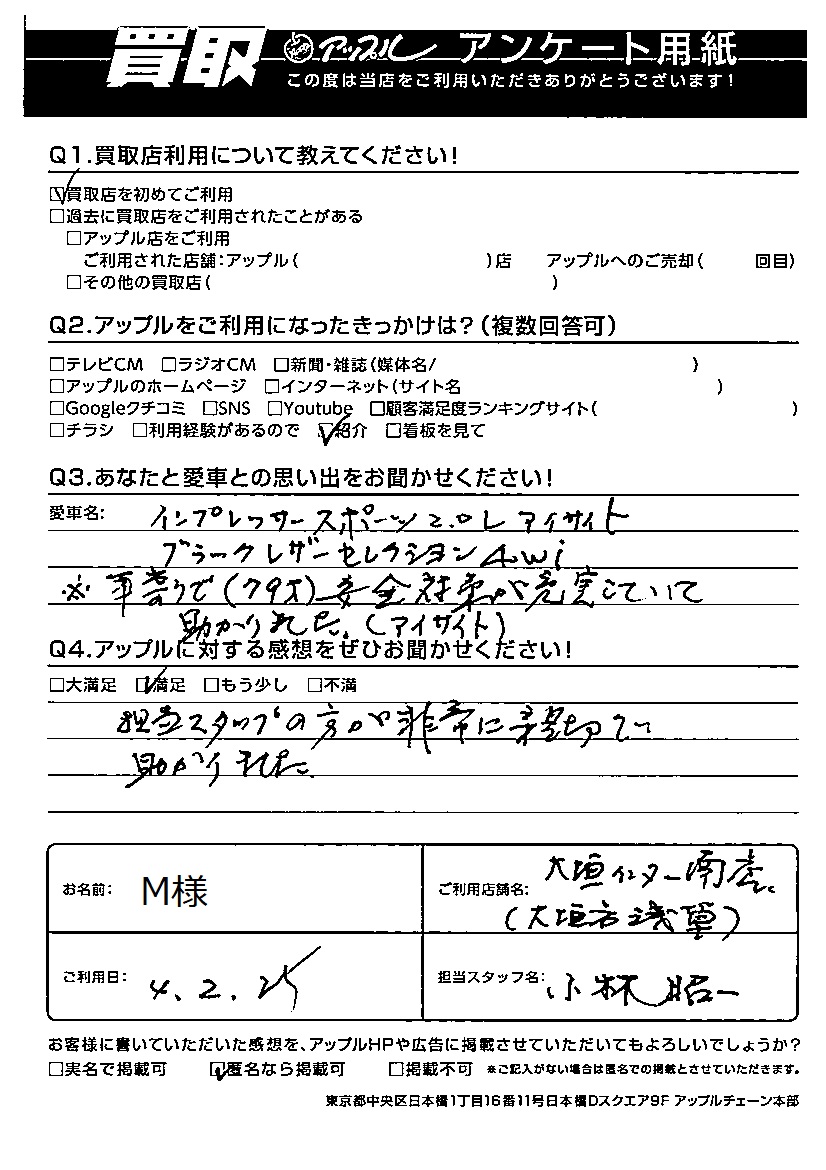 買取 アップル アンケート用紙
この度は当店をご利用いただきありがとうございます!
Q1.買取店利用について教えてください!
☑買取店を初めてご利用
□過去に買取店をご利用されたことがある
□アップル店をご利用
ご利用された店舗:アップル( )店 アップルへのご売却( 回目)
□その他の買取店( )
Q2.アップルをご利用になったきっかけは?(複数回答可)
□テレビCM □ラジオCM □新聞・雑誌(媒体名/ )
□アップルのホームページ □インターネット(サイト名 )
□Googleクチコミ □SNS □Youtube □顧客満足度ランキングサイト( )
□チラシ □利用経験があるので ☑紹介 □看板を見て
Q3.あなたと愛車との思い出をお聞かせください!
愛車名: インプレッサースポーツ2.0Lアイサイト
ブラックレザーセレクション4wi
※ 車寄りで(79才)安全対策が充実していて
助かりました。(アイサイト)
Q4.アップルに対する感想をぜひお聞かせください!
□大満足 ☑満足 □もう少し □不満
担当スタッフの方が非常に親切で
助かりました。
お名前: M様
ご利用店舗名: 大垣インター南店
(大垣市浅草)
ご利用日: 4.2.25
担当スタッフ名: 小林昭一
お客様に書いていただいた感想を、アップルHPや広告に掲載させていただいてもよろしいでしょうか?
□実名で掲載可 ☑匿名なら掲載可 □掲載不可 ※ご記入がない場合は匿名での掲載とさせていただきます。
東京都中央区日本橋1丁目16番11号日本橋Dスクエア9F アップルチェーン本部